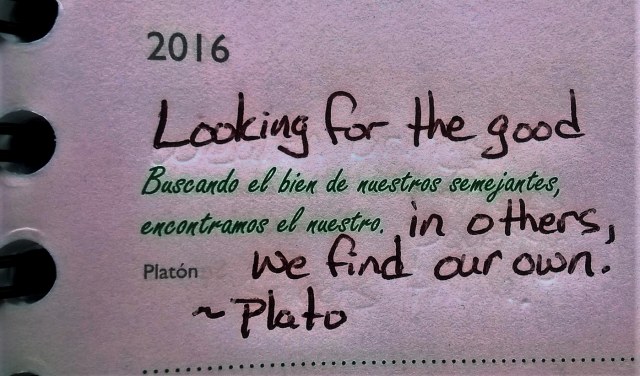 2016
Looking for the good
Buscando el bien de nuestros semejantes,
encontramos el nuestro.
in others,
Platón
we find our own.
~ Plato